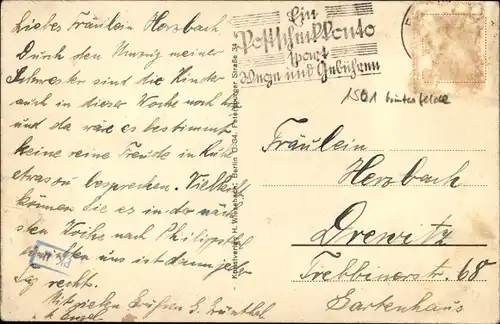 Liebes Fräulein Herzbach
Durch den Umzug meiner
Schwester sind die Kinder
auch in dieser Woche noch hier
und da wäre es bestimmt
keine reine Freude in Ruhe
etwas zu besprechen. Vielleicht
können Sie es in der näch-
sten Woche nach
uns ist dann jeder
Tag recht.
Mit vielen Grüßen G. Günthel
Ein
Postscheckkonto
spart
Wege und Gebühren
Kunstverlag H. Wiesebach, Berlin O 34, Petersburger Straße 34
1501
Fräulein
Herzbach
Drewitz
Trebbinerstr. 68
Gartenhaus